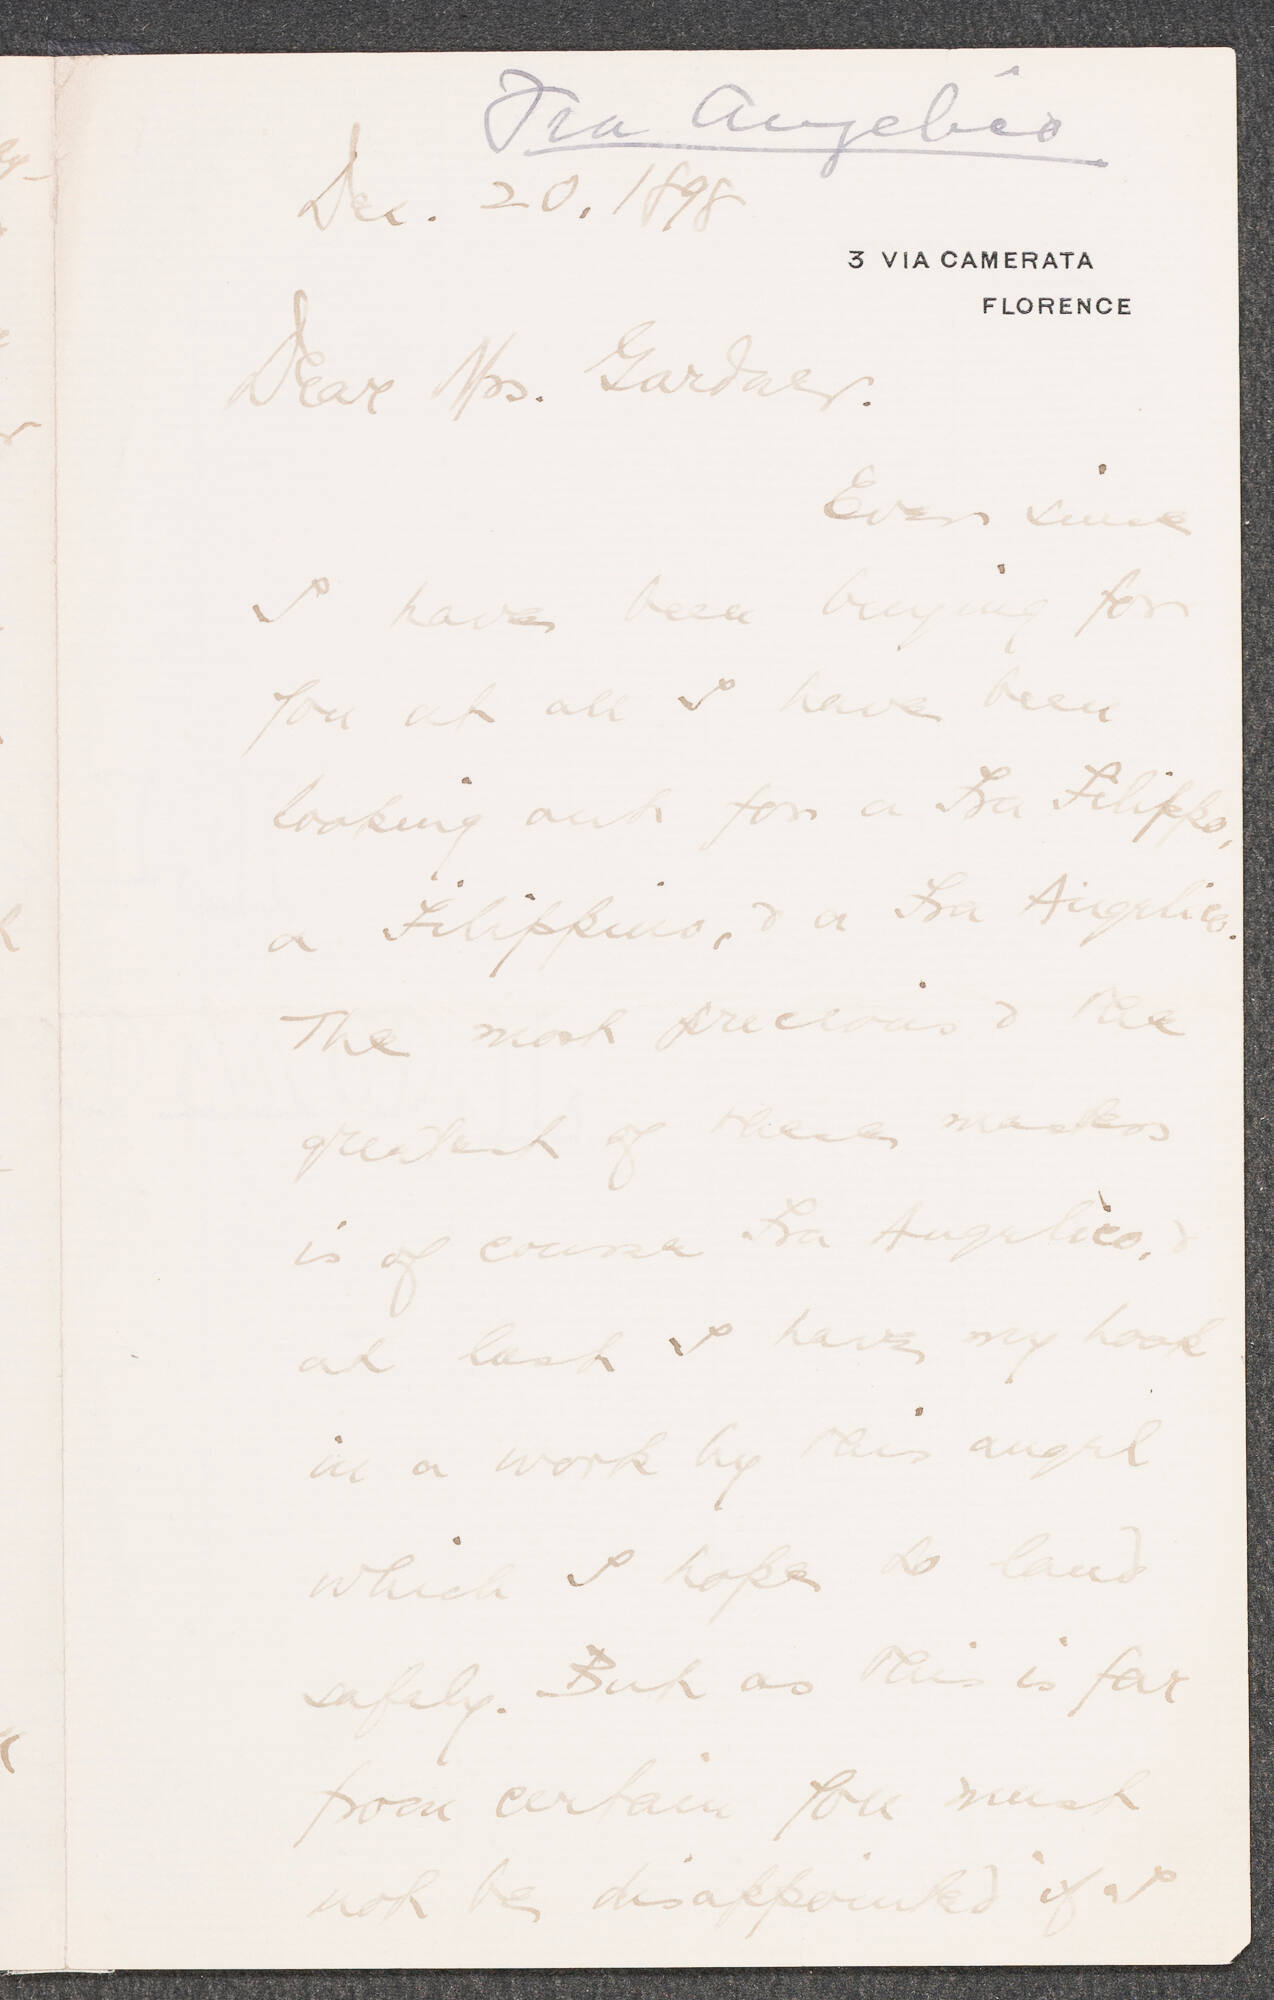 Fra Angelico
Dec. 20, 1898
3 VIA CAMERATA
FLORENCE
Dear Mrs. Gardner.
Ever since
I have been buying for
you at all I have been
looking out for a Fra Filippo,
a Filippino, & a Fra Angelico.
The most precious & the
greatest of these masters
is of course Fra Angelico, &
at last I have my hook
in a work by this angel
which I hope to land
safely. But as this is far
from certain you must
not be disappointed if I